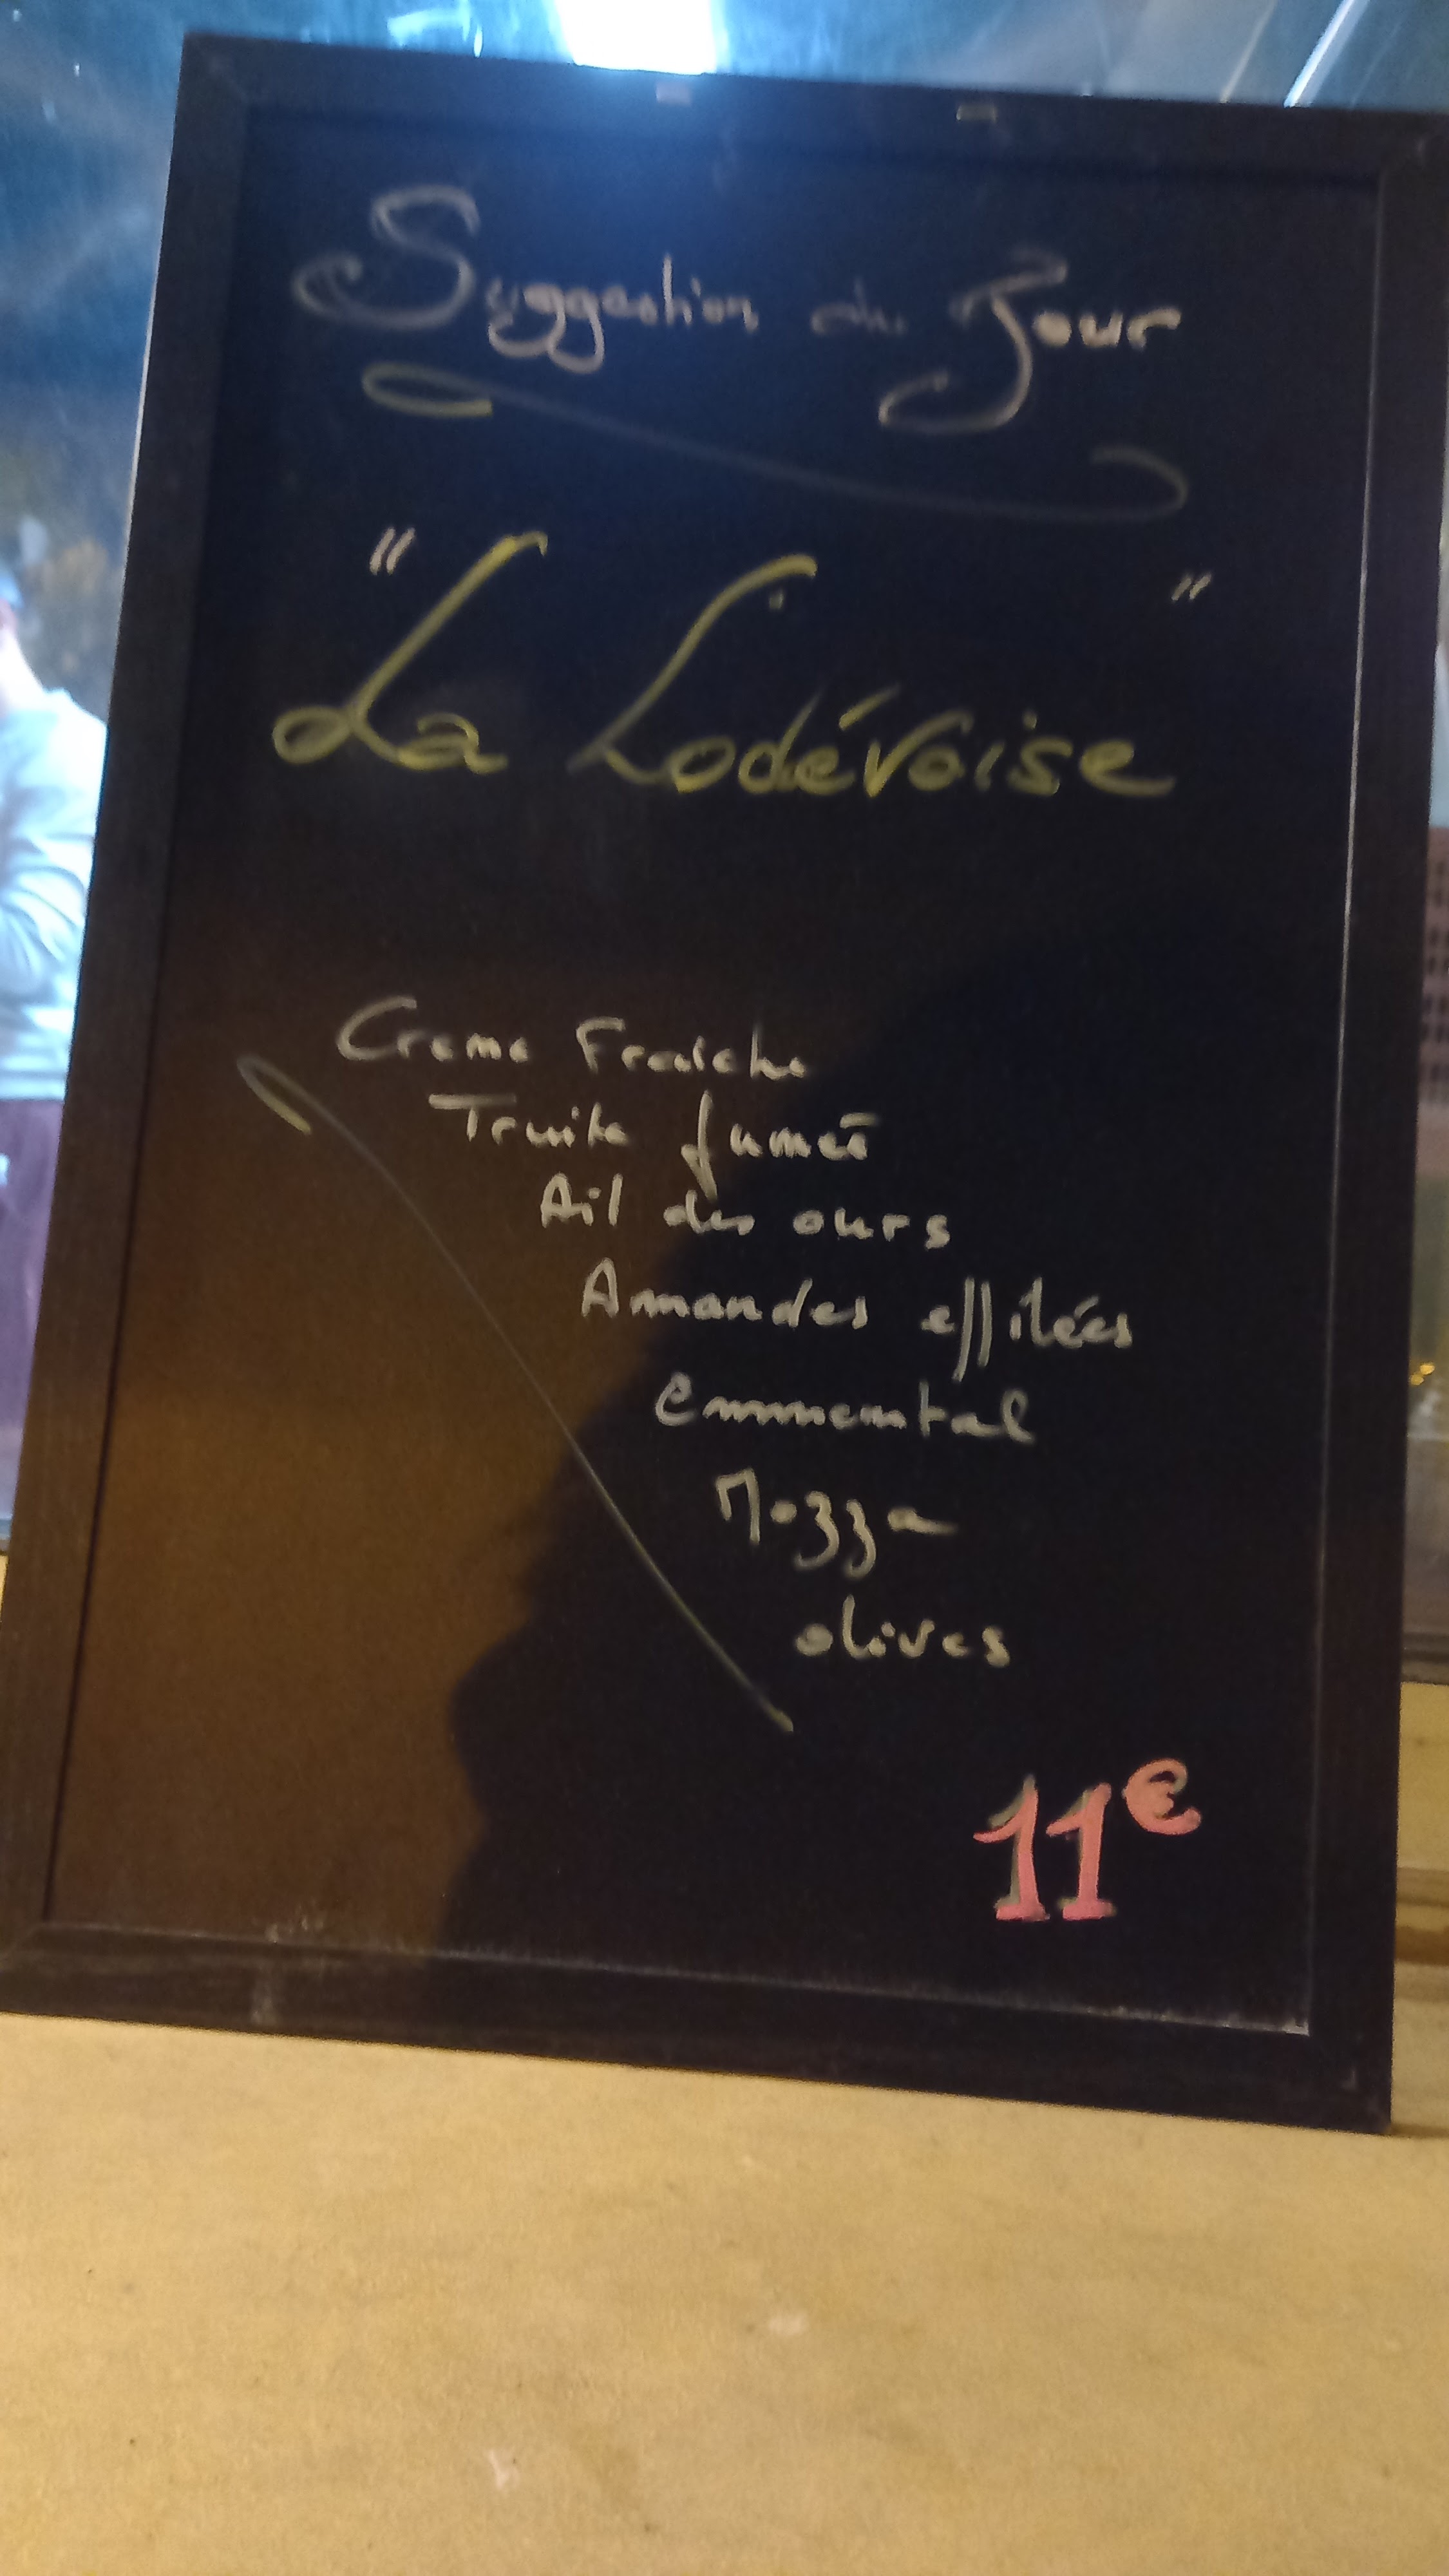 Suggestion du Jour
"La Lodévoise"
Creme Fraiche
Truite fumée
Ail des ours
Amandes effilées
Emmental
Mozza
olives
11€